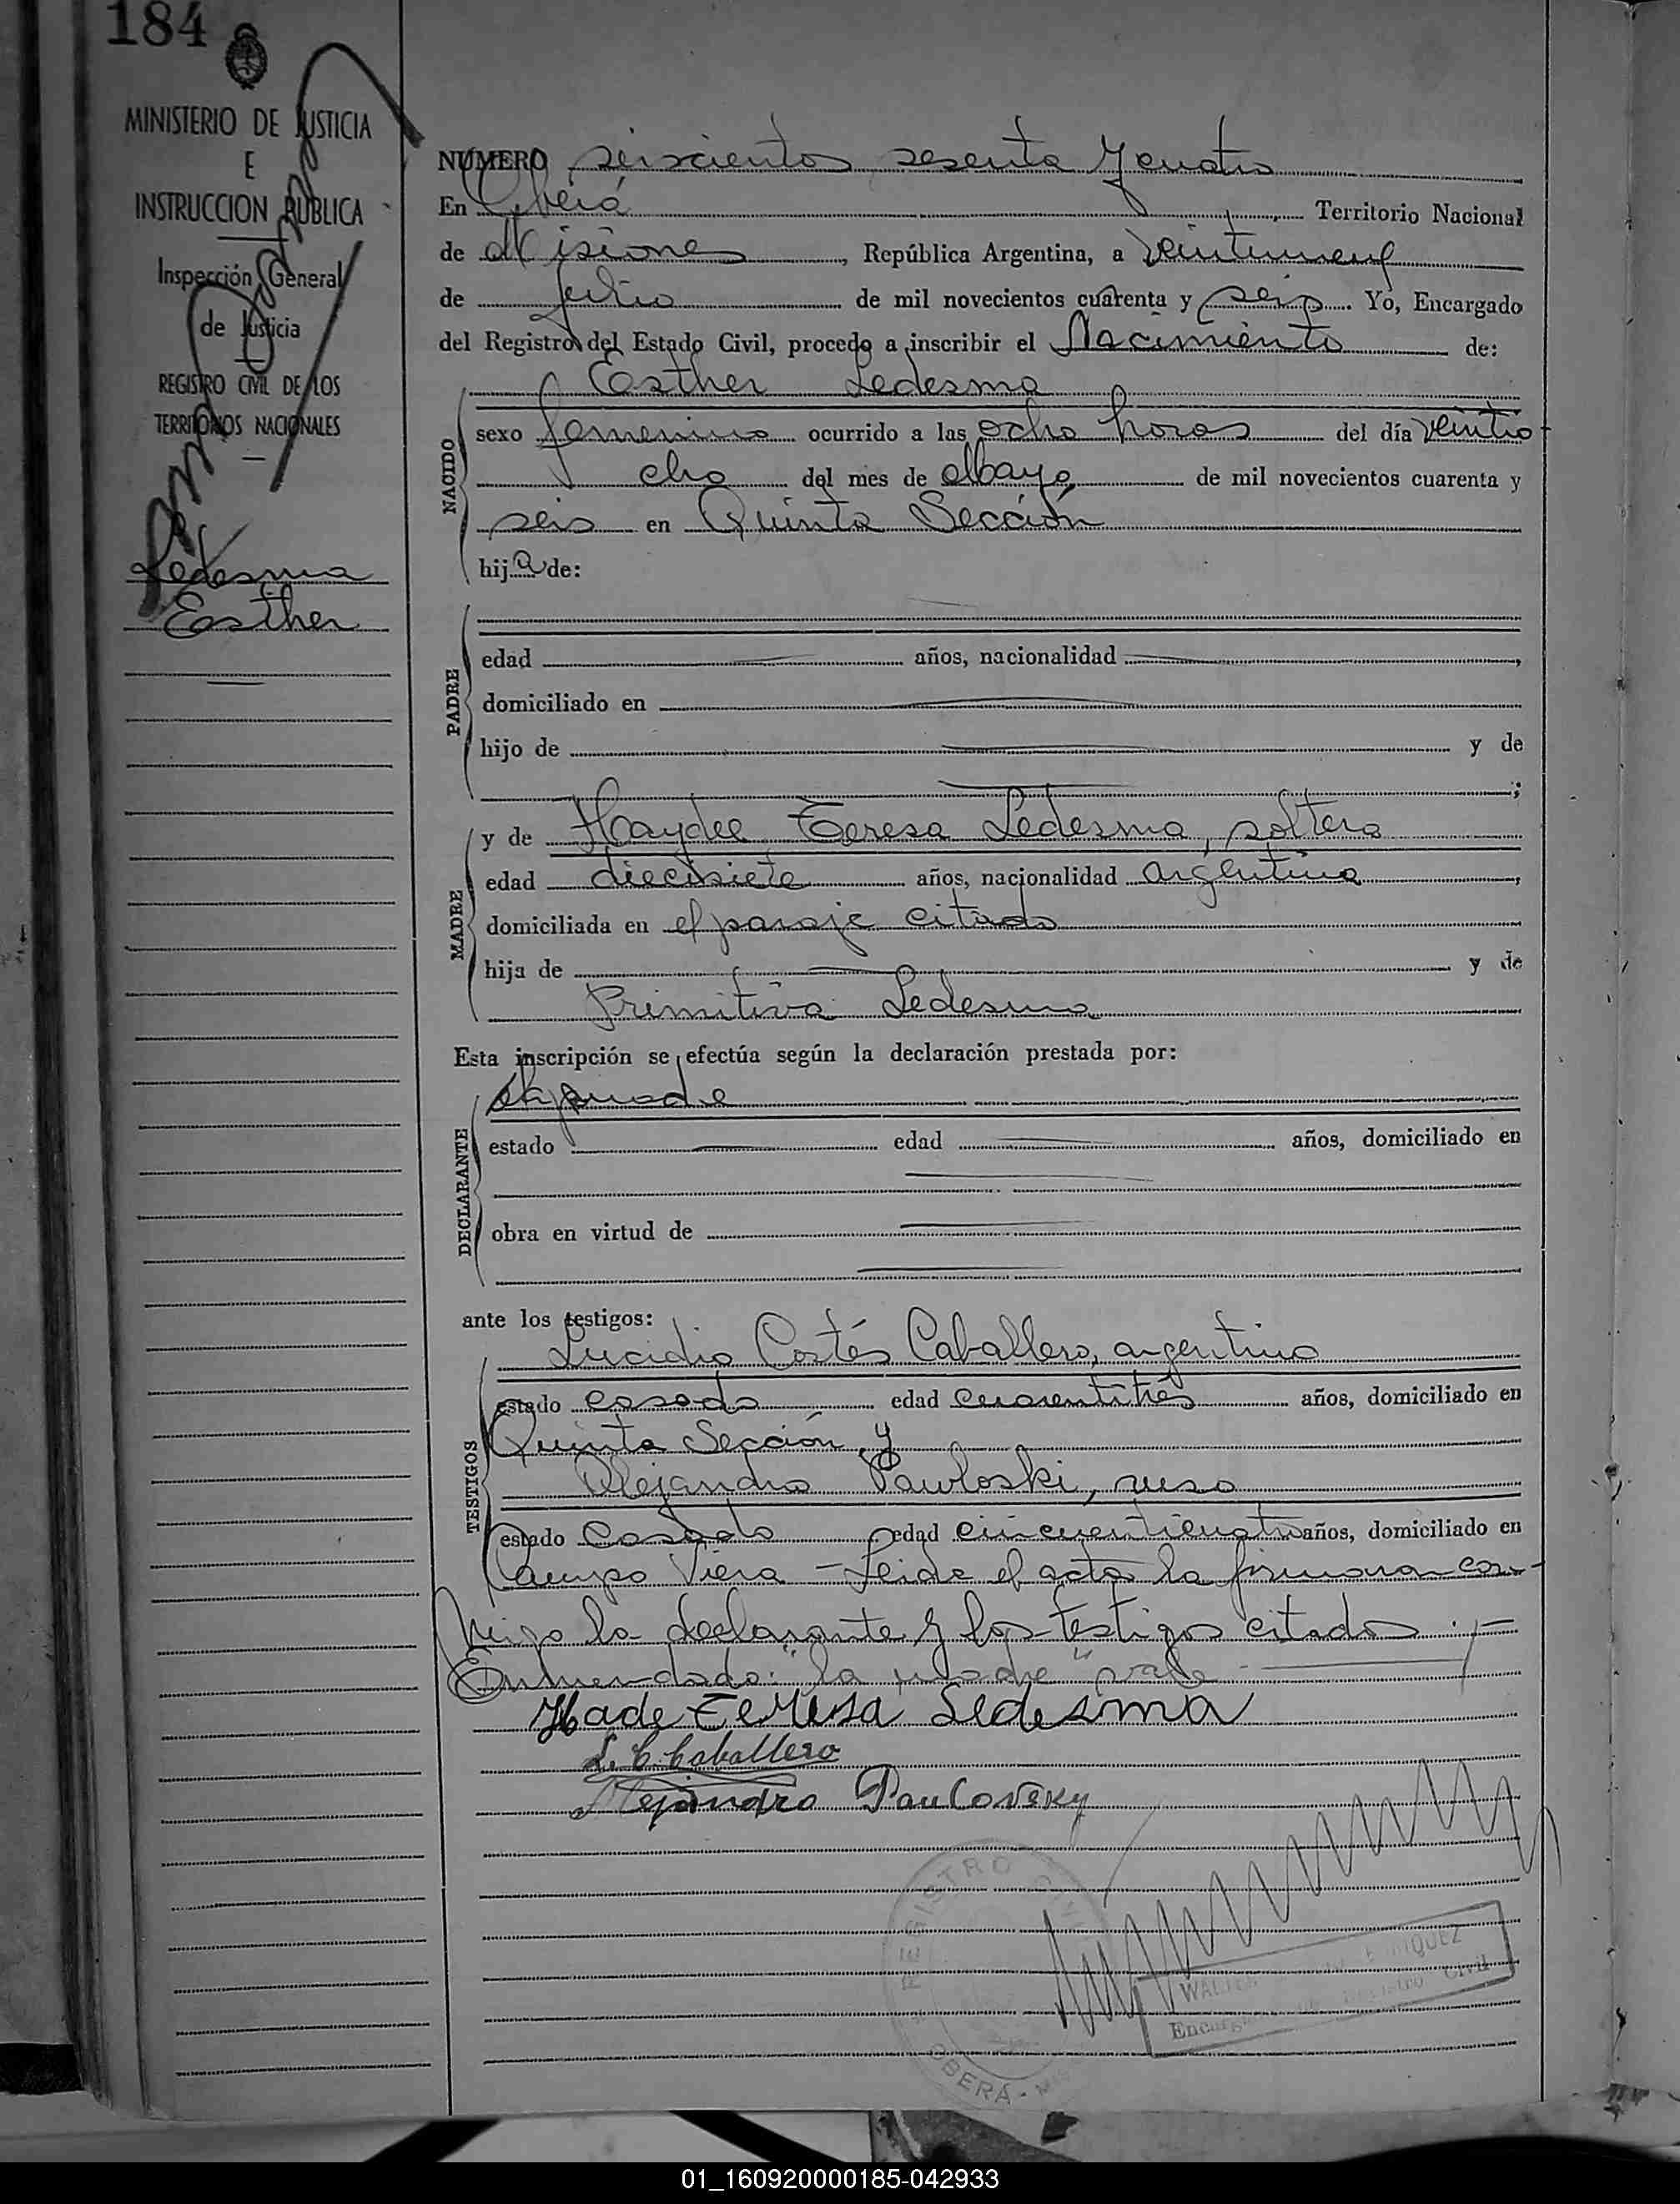 184
MINISTERIO DE JUSTICIA
E
INSTRUCCION PUBLICA
Inspección General
de Justicia
REGISTRO CIVIL DE LOS
TERRITORIOS NACIONALES
Ledesma
Esther
NUMERO seiscientos sesenta y cuatro
En Oberá Territorio Nacional
de Misiones, República Argentina, a veintinueve
de julio de mil novecientos cuarenta y seis. Yo, Encargado
del Registro del Estado Civil, procedo a inscribir el Nacimiento de:
Esther Ledesma
NACIDO
sexo femenino ocurrido a las ocho horas del día veintio-
cho del mes de Mayo de mil novecientos cuarenta y
seis en Quinta Sección
hija de:
PADRE
edad años, nacionalidad ,
domiciliado en
hijo de y de
;
MADRE
y de Haydee Teresa Ledesma, soltera
edad diecisiete años, nacionalidad argentina,
domiciliada en el paraje citado
hija de y de
Primitiva Ledesma
Esta inscripción se efectúa según la declaración prestada por:
DECLARANTE
la madre
estado edad años, domiciliado en
obra en virtud de
ante los testigos:
TESTIGOS
Lucidio Cortés Caballero, argentino
estado casado edad cuarentitrés años, domiciliado en
Quinta Sección, y
Alejandro Pawloski, ruso
estado casado edad cincuenticuatro años, domiciliado en
Campo Viera - Leida el acta la firmaron con-
migo la declarante y los testigos citados.-
Enmendado: "la madre" vale
Hade Teresa Ledesma
L. C. Caballero
Alejandro Paulovsky
REGISTRO CIVIL
OBERÁ -
WALTER ENRIQUEZ
Registro Civil
01_160920000185-042933